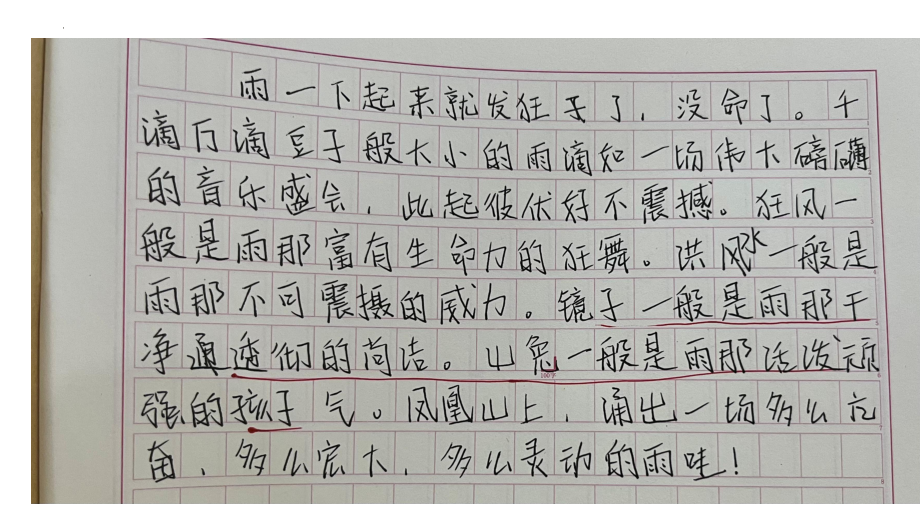 雨一下起来就发狂了,没命了。千
滴万滴豆子般大小的雨滴如一场伟大磅礴
的音乐盛会,此起彼伏好不震撼。狂风一
般是雨那富有生命力的狂舞。洪水一般是
雨那不可震摄的威力。镜子一般是雨那干
净通透彻的简洁。山兔一般是雨那活泼顽
强的孩子气。凤凰山上,涌出一场多么亢
奋、多么宏大、多么灵动的雨哇!